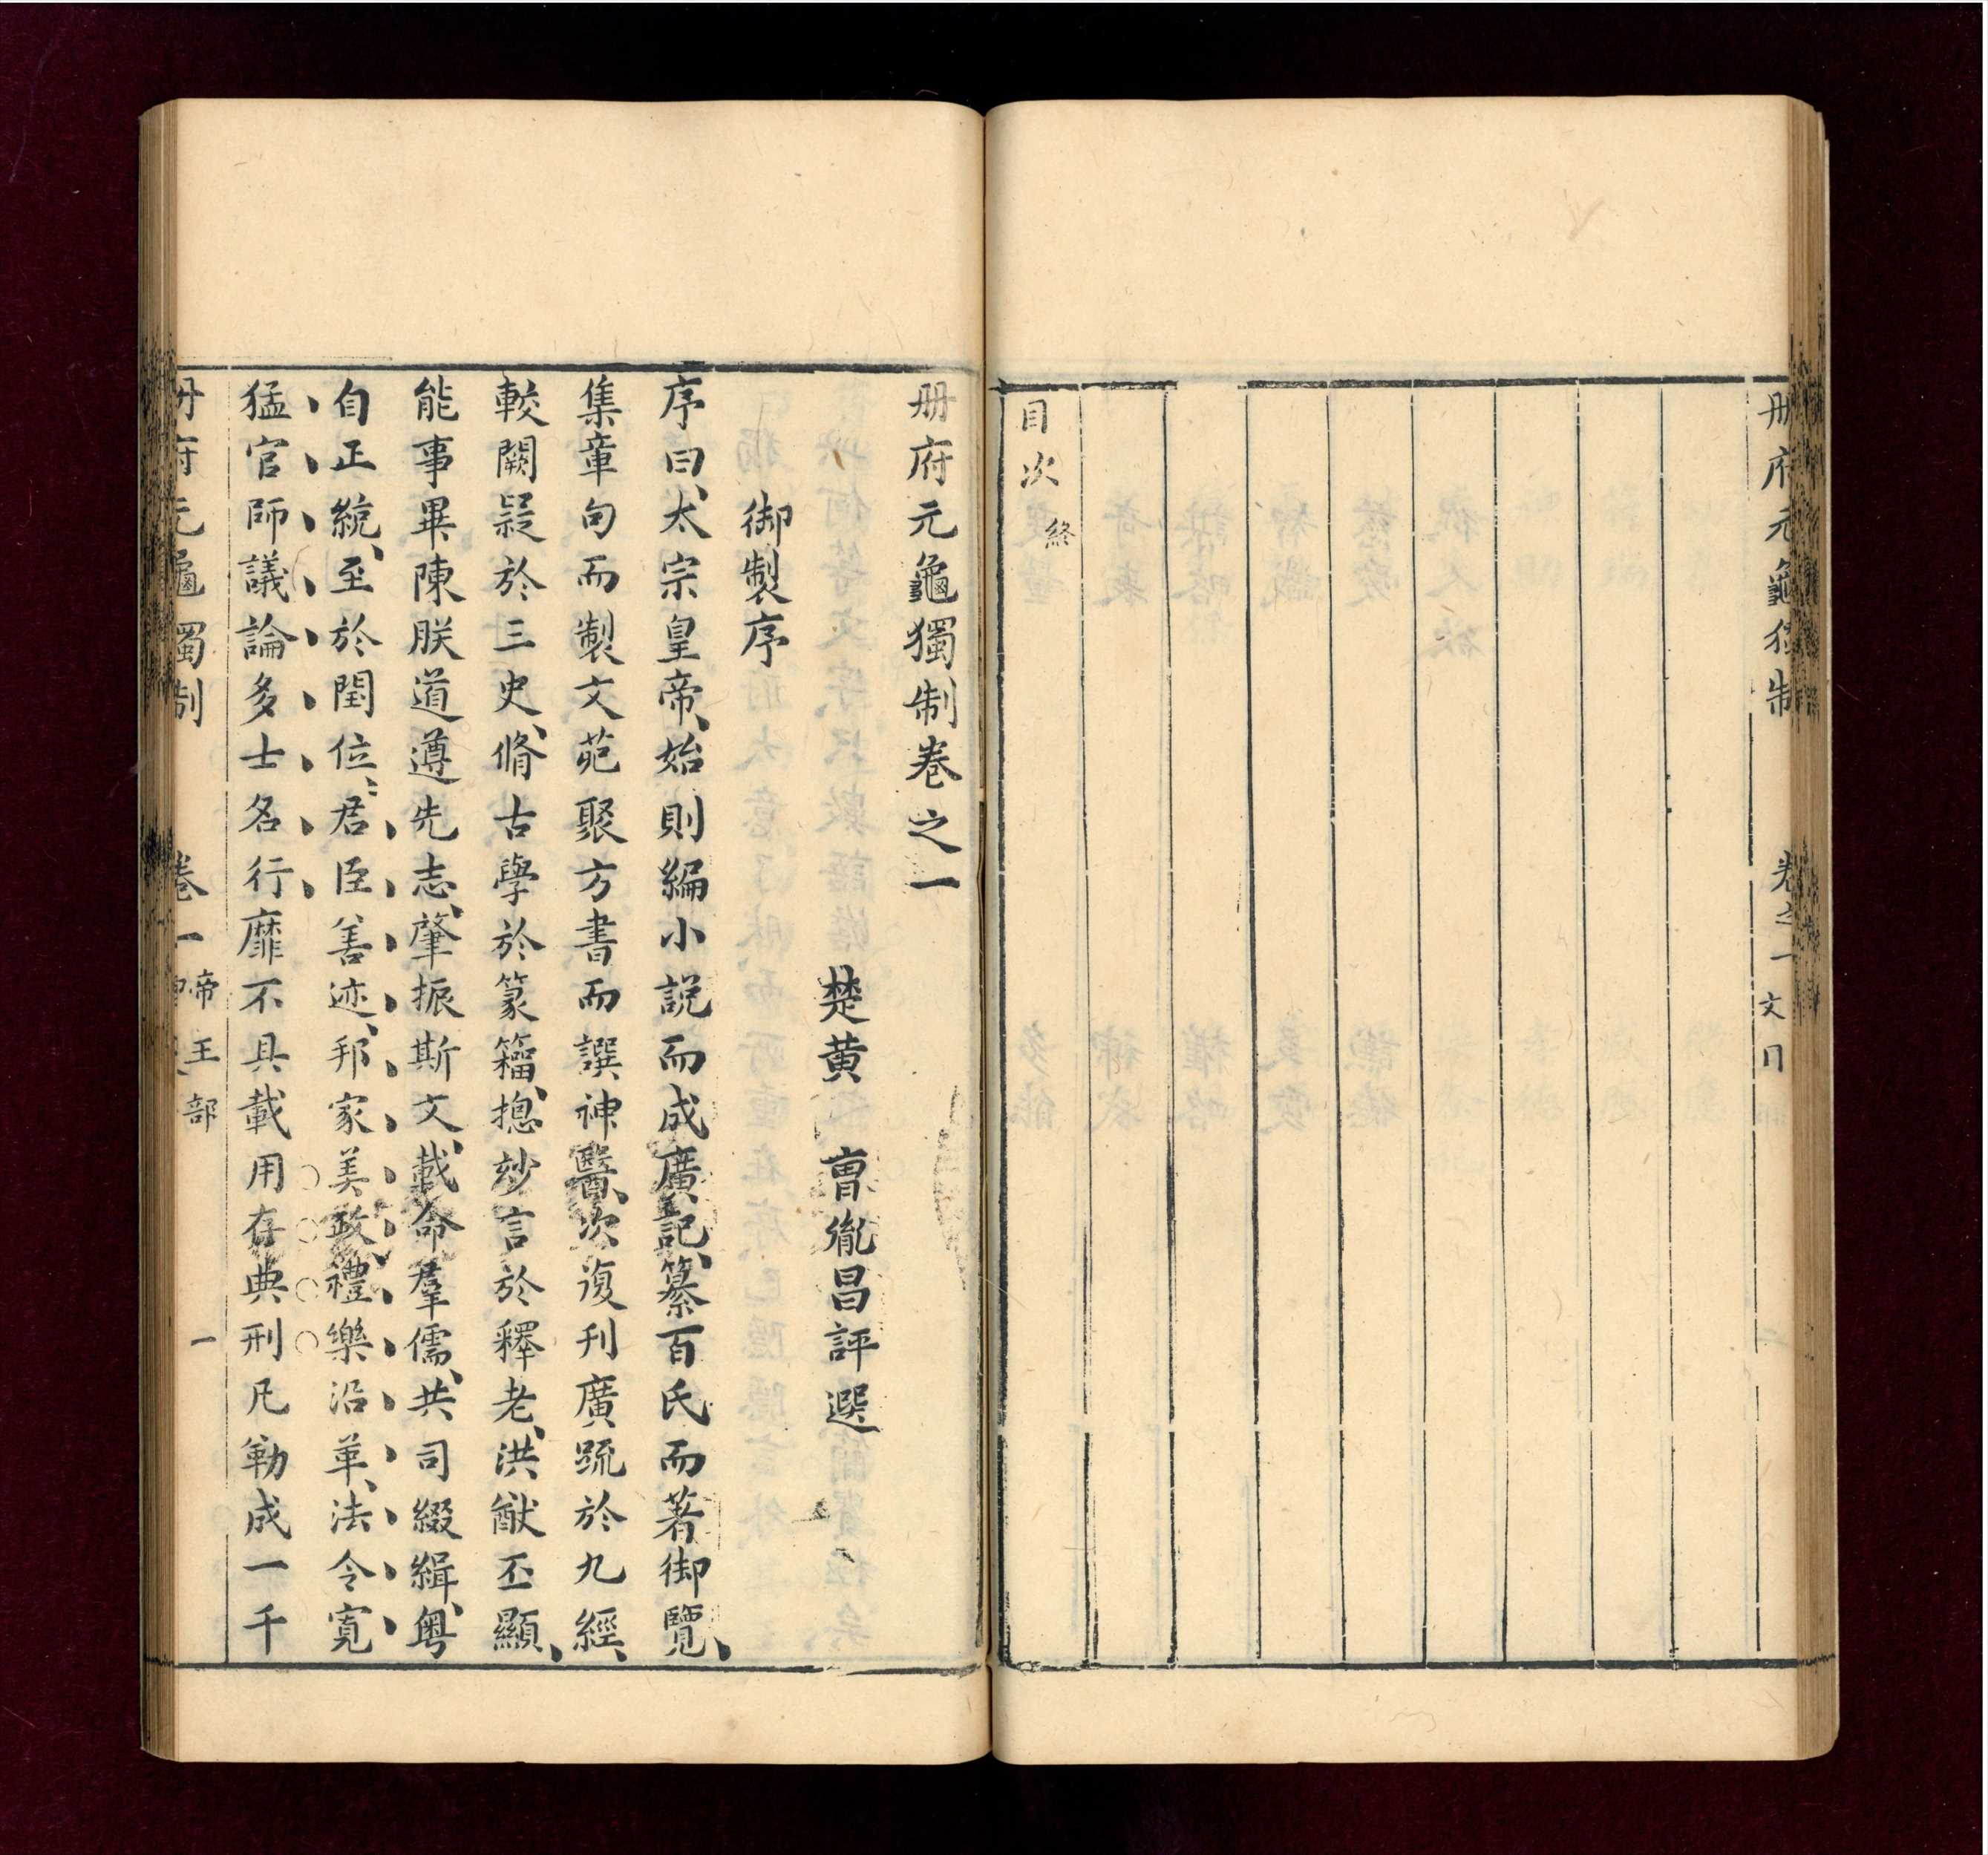 册府元龜獨制
卷之一
目次終
册府元龜獨制卷之一
楚黃 曺胤昌評選
御製序
序曰、太宗皇帝、始則編小說而成廣記、纂百氏而著御覽、
集章句而製文苑聚方書而譔神醫、次復刋廣䟽於九經、
較闕疑於三史、脩古學於篆籀、摠妙言於釋老、洪猷丕顯、
能事畢陳朕道遵先志、肇振斯文、載命羣儒、共司綴緝、粵
自正統、至於閏位、君臣善迹、邦家美政、禮樂沿革、法令寬
猛官師議論多士名行靡不具載用存典刑凡勒成一千
册府元龜獨制
卷一
帝王部
一